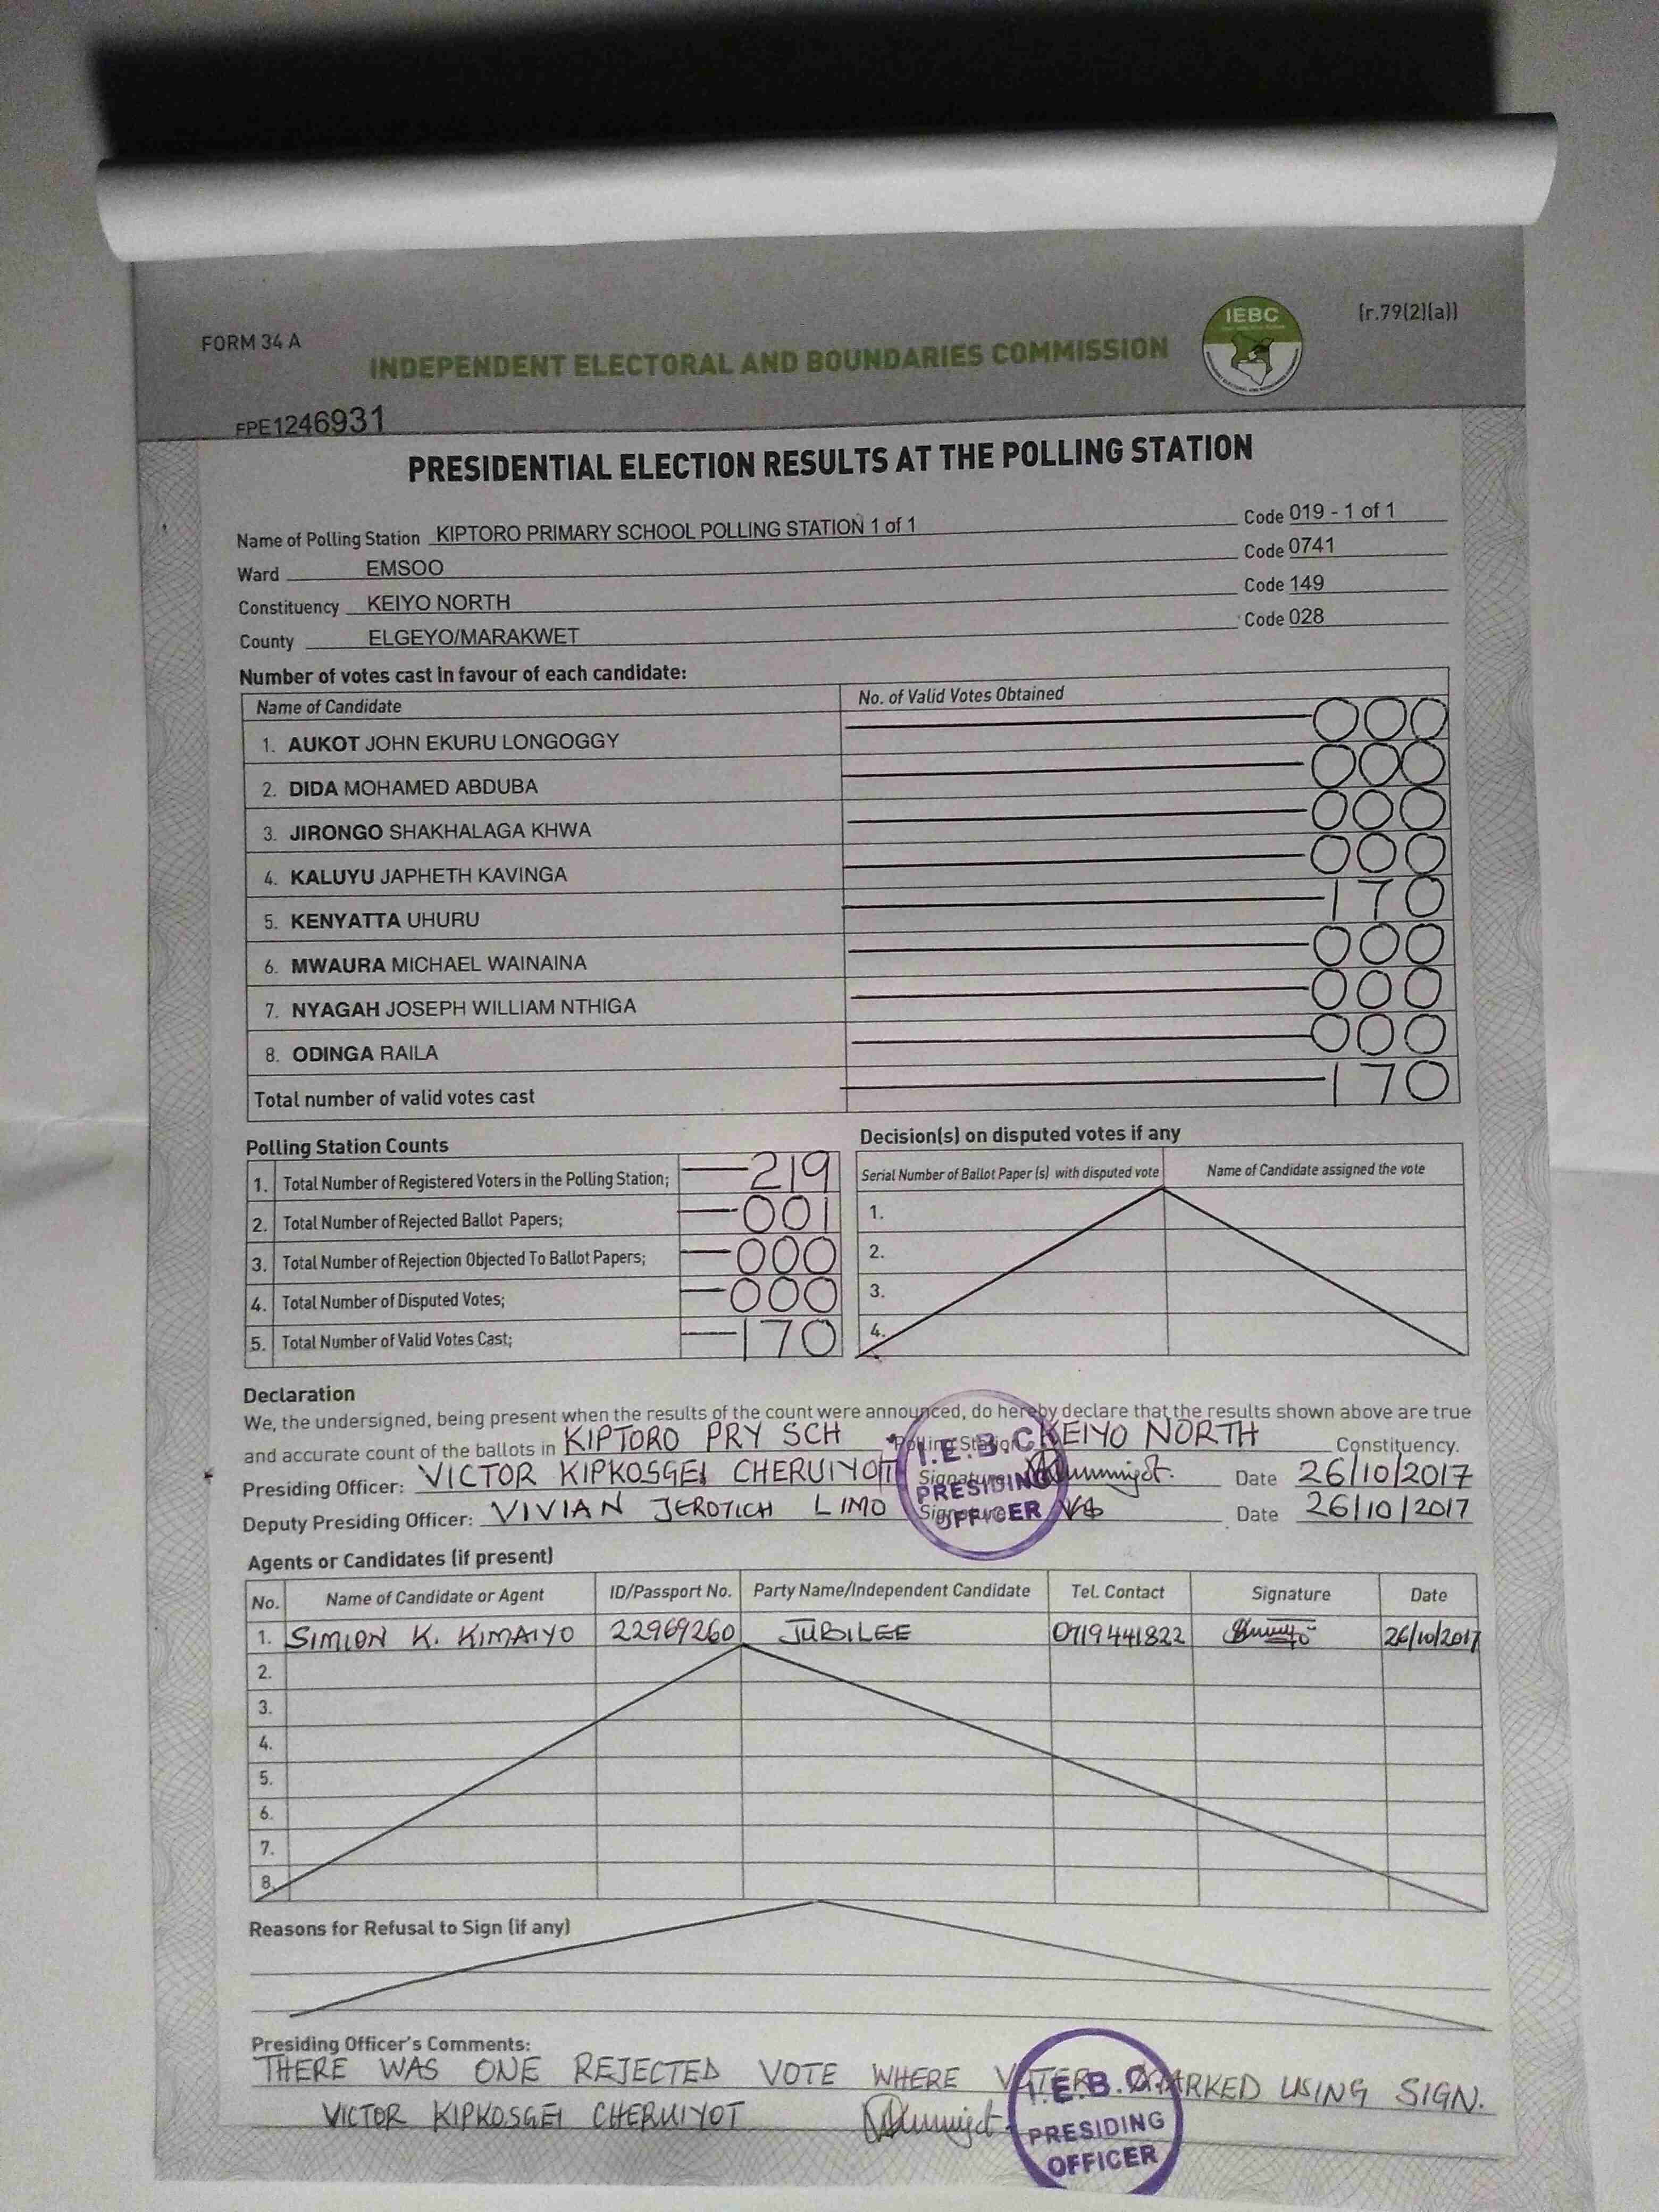 FORM 34 A
IEBC
(r.79(2)(a))
INDEPENDENT ELECTORAL AND BOUNDARIES COMMISSION
FPE1246931
PRESIDENTIAL ELECTION RESULTS AT THE POLLING STATION
Name of Polling Station KIPTORO PRIMARY SCHOOL POLLING STATION 1 of 1 Code 019 - 1 of 1
Ward EMSOO Code 0741
Constituency KEIYO NORTH Code 149
County ELGEYO/MARAKWET Code 028
Number of votes cast in favour of each candidate:
Name of Candidate No. of Valid Votes Obtained
1. AUKOT JOHN EKURU LONGOGGY 000
2. DIDA MOHAMED ABDUBA 000
3. JIRONGO SHAKHALAGA KHWA 000
4. KALUYU JAPHETH KAVINGA 000
5. KENYATTA UHURU 170
6. MWAURA MICHAEL WAINAINA 000
7. NYAGAH JOSEPH WILLIAM NTHIGA 000
8. ODINGA RAILA 000
Total number of valid votes cast 170
Polling Station Counts
1. Total Number of Registered Voters in the Polling Station; 219
2. Total Number of Rejected Ballot Papers; 001
3. Total Number of Rejection Objected To Ballot Papers; 000
4. Total Number of Disputed Votes; 000
5. Total Number of Valid Votes Cast; 170
Decision(s) on disputed votes if any
Serial Number of Ballot Paper (s) with disputed vote Name of Candidate assigned the vote
1.
2.
3.
4.
Declaration
We, the undersigned, being present when the results of the count were announced, do hereby declare that the results shown above are true
and accurate count of the ballots in KIPTORO PRY SCH Polling Station KEIYO NORTH Constituency.
Presiding Officer: VICTOR KIPKOSGEI CHERUIYOT Signature Date 26/10/2017
Deputy Presiding Officer: VIVIAN JEROTICH LIMO Signature Date 26/10/2017
I.E.B.C
PRESIDING
OFFICER
Agents or Candidates (if present)
No. Name of Candidate or Agent ID/Passport No. Party Name/Independent Candidate Tel. Contact Signature Date
1. SIMION K. KIMAIYO 22969260 JUBILEE 0719441822 26/10/2017
2.
3.
4.
5.
6.
7.
8.
Reasons for Refusal to Sign (if any)
Presiding Officer's Comments:
THERE WAS ONE REJECTED VOTE WHERE VOTER MARKED USING SIGN.
VICTOR KIPKOSGEI CHERUIYOT
I.E.B.C
PRESIDING
OFFICER